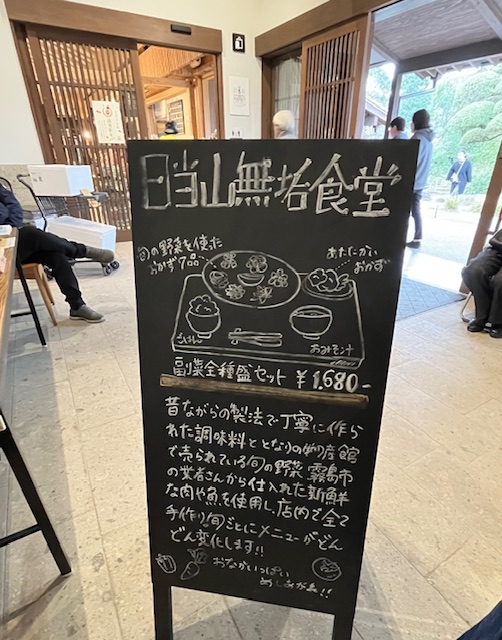 日当山無垢食堂
旬の野菜を使った
おかず7品
あたたかい
おかず
ごはん
おみそ汁
副菜全種盛セット ¥1,680-
昔ながらの製法で丁寧に作ら
れた調味料ととなりの物産館
で売られている旬の野菜 霧島市
の業者さんから仕入れた新鮮
な肉や魚を使用し、店内で全て
手作り!旬ごとにメニューがどん
どん変化します!!
おなかいっぱい
めしあがれ!!